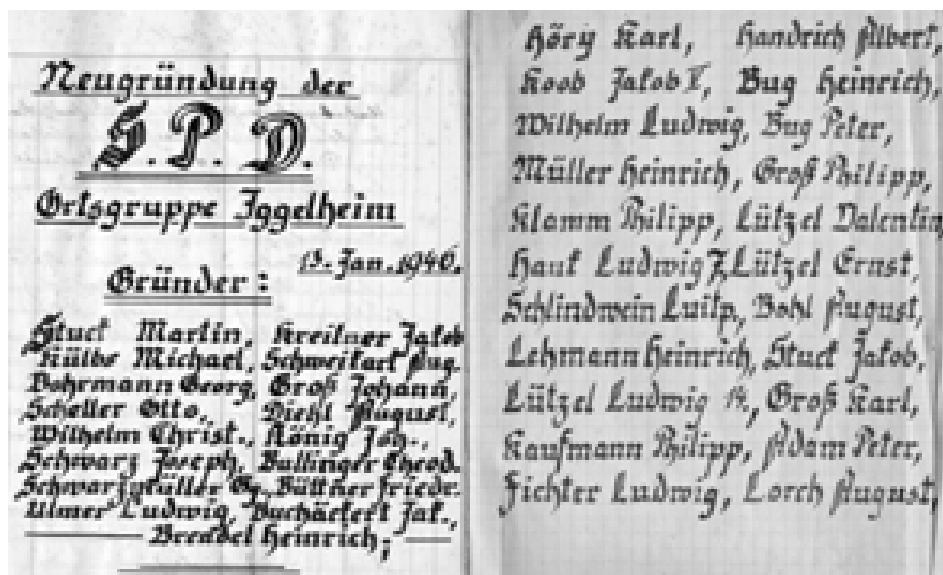 Neugründung der
S.P.D.
Ortsgruppe Iggelheim
13. Jan. 1946.
Gründer:
Stuck Martin, Kreitner Jakob
Külbs Michael, Schweikart Aug.
Bohrmann Georg, Groß Johann,
Scheller Otto, Diehl August,
Wilhelm Christ., König Joh.,
Schwarz Joseph, Bullinger Theod.
Schwarzmüller Gg., Büttner Friedr.
Ulmer Ludwig, Buchäckert Jak.,
Breudel Heinrich;
Höry Karl, Handrich Albert,
Koob Jakob V, Bug Heinrich,
Wilhelm Ludwig, Bug Peter,
Müller Heinrich, Groß Philipp,
Klamm Philipp, Lützel Valentin
Hauk Ludwig 7, Lützel Ernst,
Schlindwein Luitp., Bohl August,
Lehmann Heinrich, Stuck Jakob,
Lützel Ludwig 14., Groß Karl,
Kaufmann Philipp, Adam Peter,
Fichter Ludwig, Lorch August,